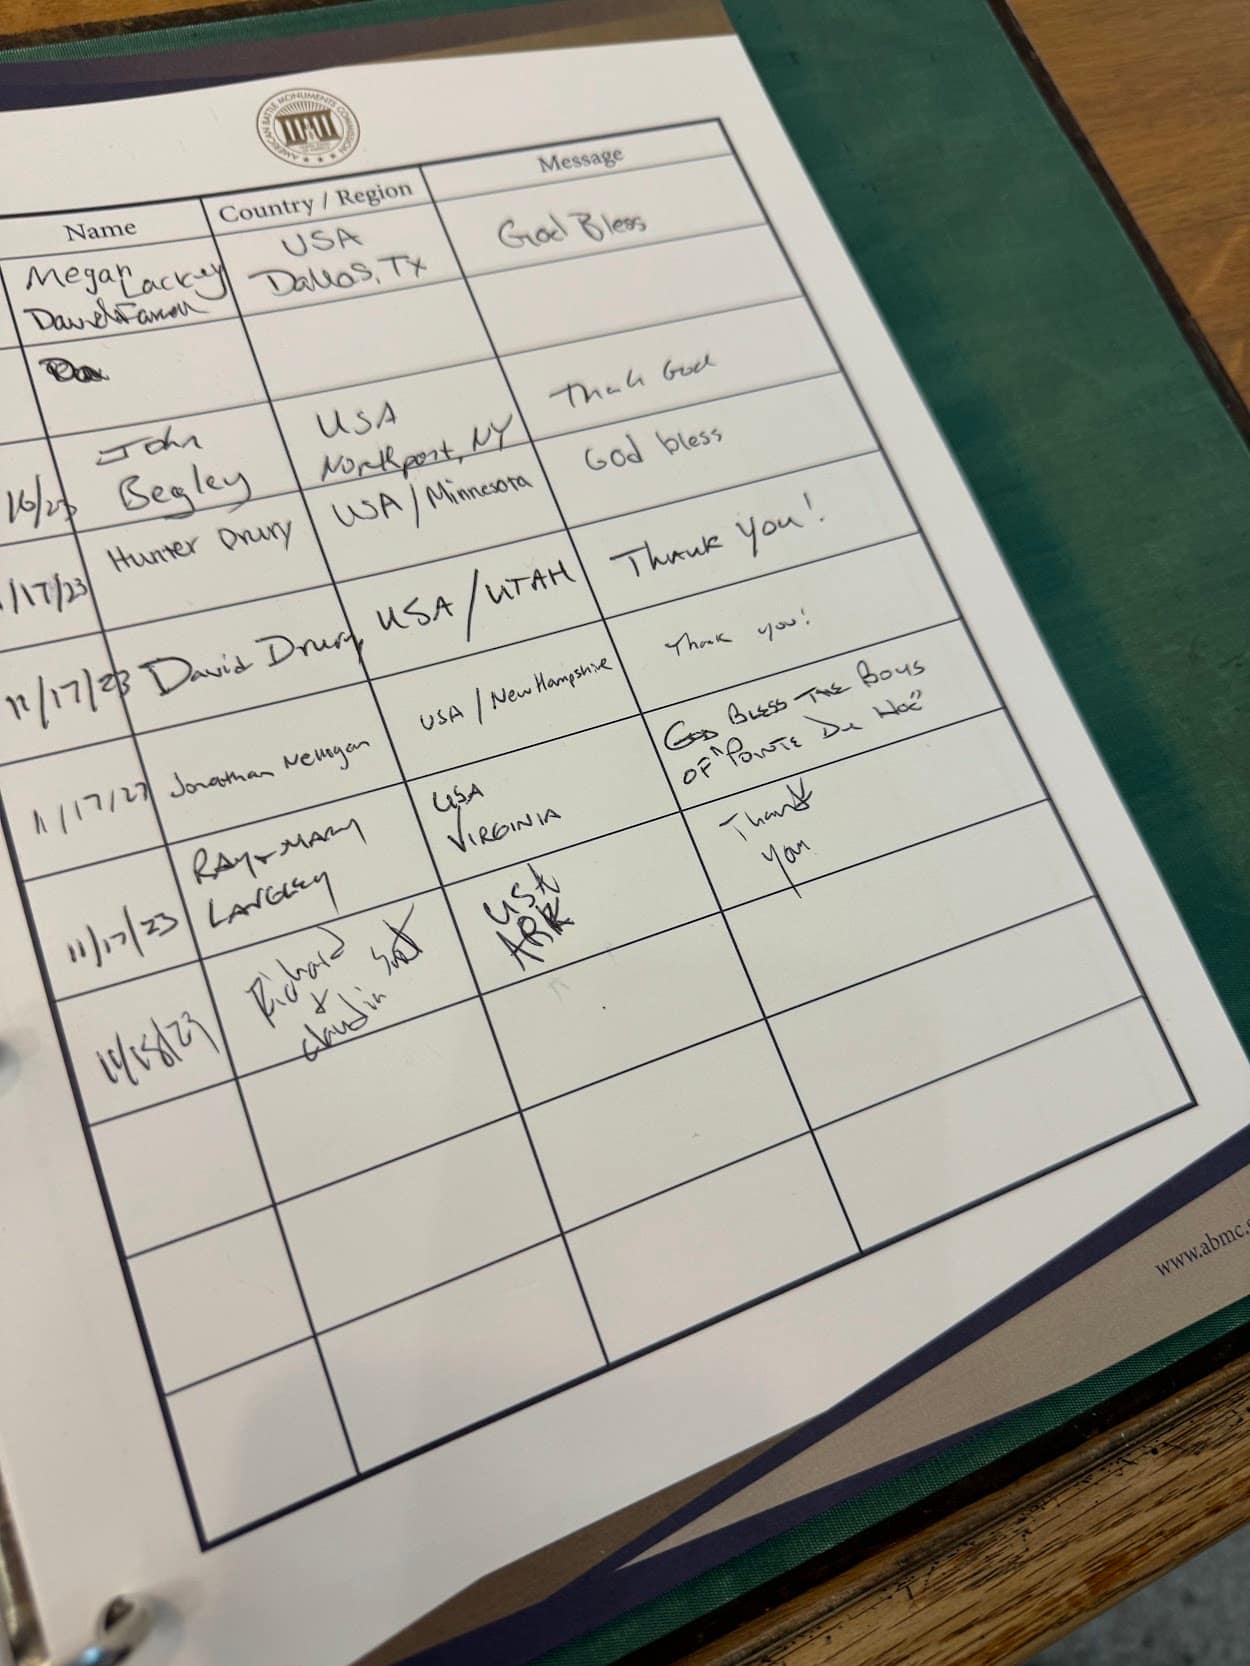 AMERICAN BATTLE MONUMENTS COMMISSION
Name Country / Region Message
Megan Lackey USA God Bless
David Dallas, TX
John USA Thank God
16/23 Begley Northport, NY
/17/23 Hunter Drury USA/Minnesota God bless
11/17/23 David Drury USA/UTAH Thank you!
11/17/23 Jonathan USA/New Hampshire Thank you!
11/17/23 RAY + MARY USA GOD BLESS THE BOYS
LANGLEY VIRGINIA OF "POINTE DU HOC"
11/18/23 Richard USA Thank
& ARK you
www.abmc.